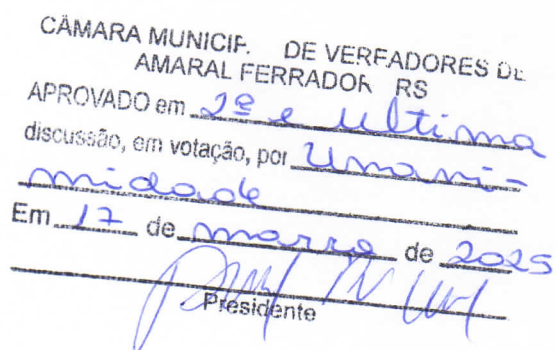 CÂMARA MUNICIP. DE VEREADORES DE
AMARAL FERRADOR RS
APROVADO em 2ª e ultima
discussão, em votação, por Unani-
midade
Em 17 de março de 2025
Presidente